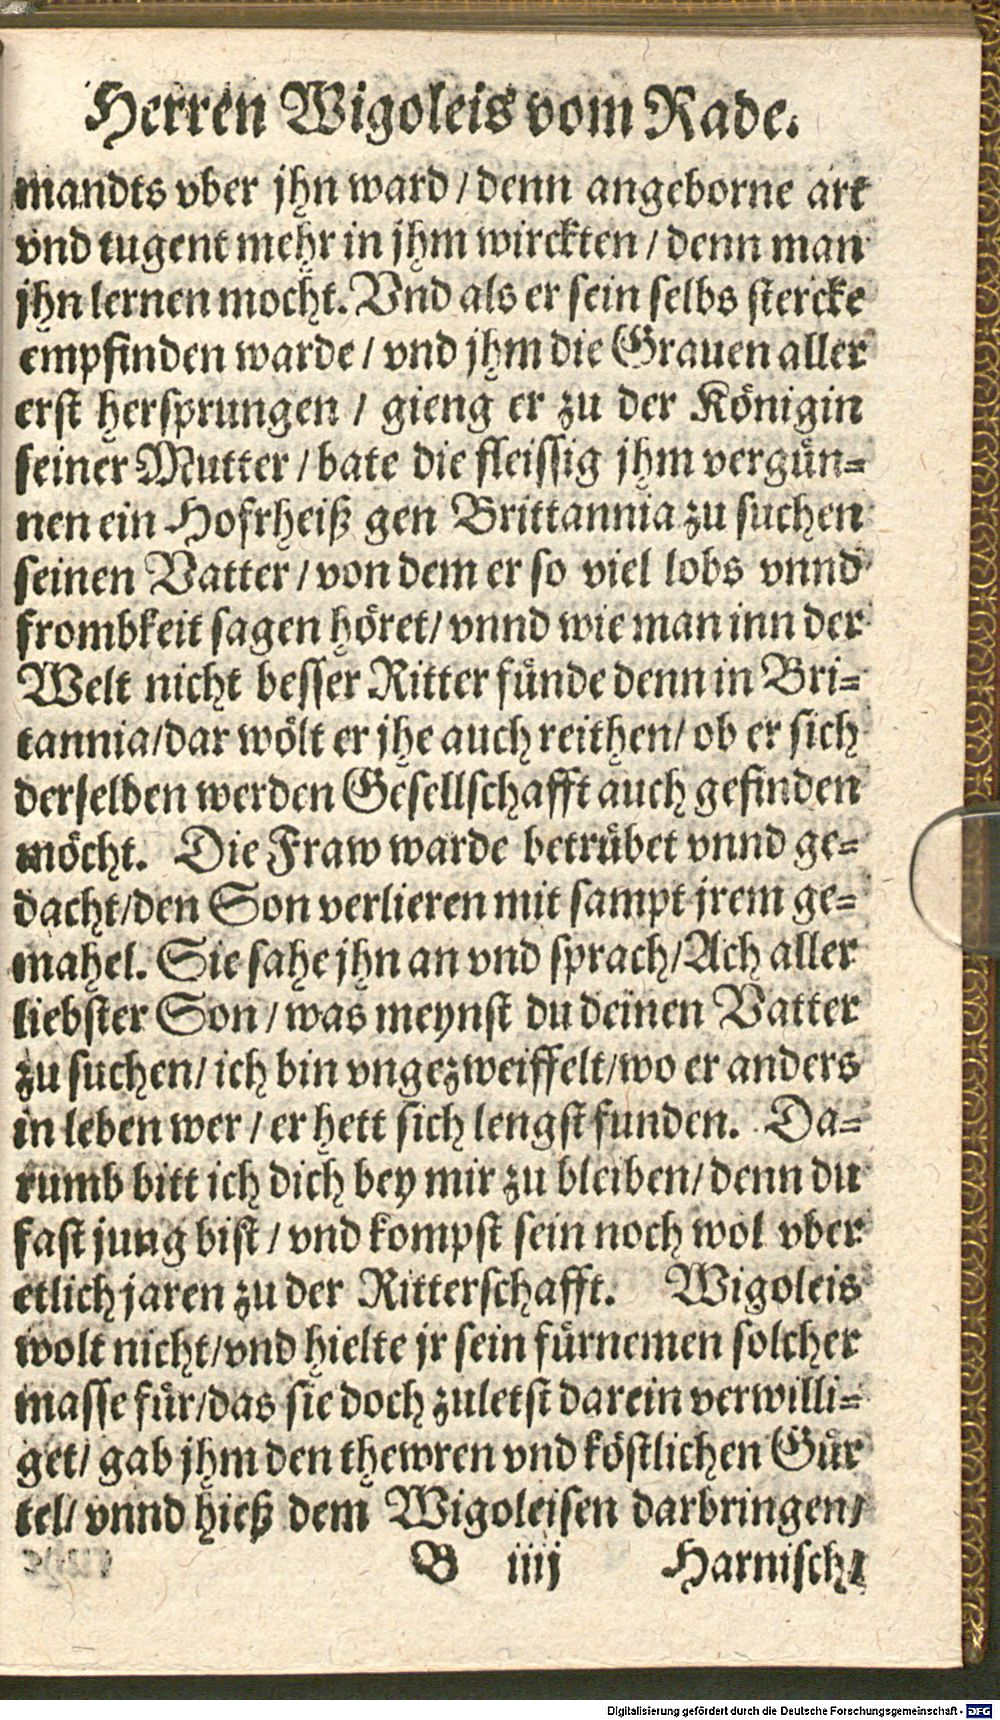 Herren Wigoleis vom Rade.
mandts vber jhn ward / denn angeborne art
vnd tugent mehr in jhm wirckten / denn man
jhn lernen mocht. Vnd als er sein selbs stercke
empfinden warde / vnd jhm die Grauen aller
erst hersprungen / gieng er zu der Königin
seiner Mutter / bate die fleissig jhm vergün-
nen ein Hofrheiß gen Brittannia zu suchen
seinen Vatter / von dem er so viel lobs vnnd
frombkeit sagen höret / vnnd wie man inn der
Welt nicht besser Ritter fünde denn in Bri-
tannia / dar wölt er jhe auch reithen / ob er sich
derselben werden Gesellschafft auch gefinden
möcht. Die Fraw warde betrübet vnnd ge-
dacht / den Son verlieren mit sampt jrem ge-
mahel. Sie sahe jhn an vnd sprach / Ach aller
liebster Son / was meynst du deinen Vatter
zu suchen / ich bin vngezweiffelt / wo er anders
in leben wer / er hett sich lengst funden. Da-
rumb bitt ich dich bey mir zu bleiben / denn du
fast jung bist / vnd kompst sein noch wol vber
etlich jaren zu der Ritterschafft. Wigoleis
wolt nicht / vnd hielte jr sein fürnemen solcher
masse für / das sie doch zuletst darein verwilli-
get / gab jhm den thewren vnd köstlichen Gür
tel / vnnd hieß dem Wigoleisen darbringen /
B iiij Harnisch /
Digitalisierung gefördert durch die Deutsche Forschungsgemeinschaft - DFG